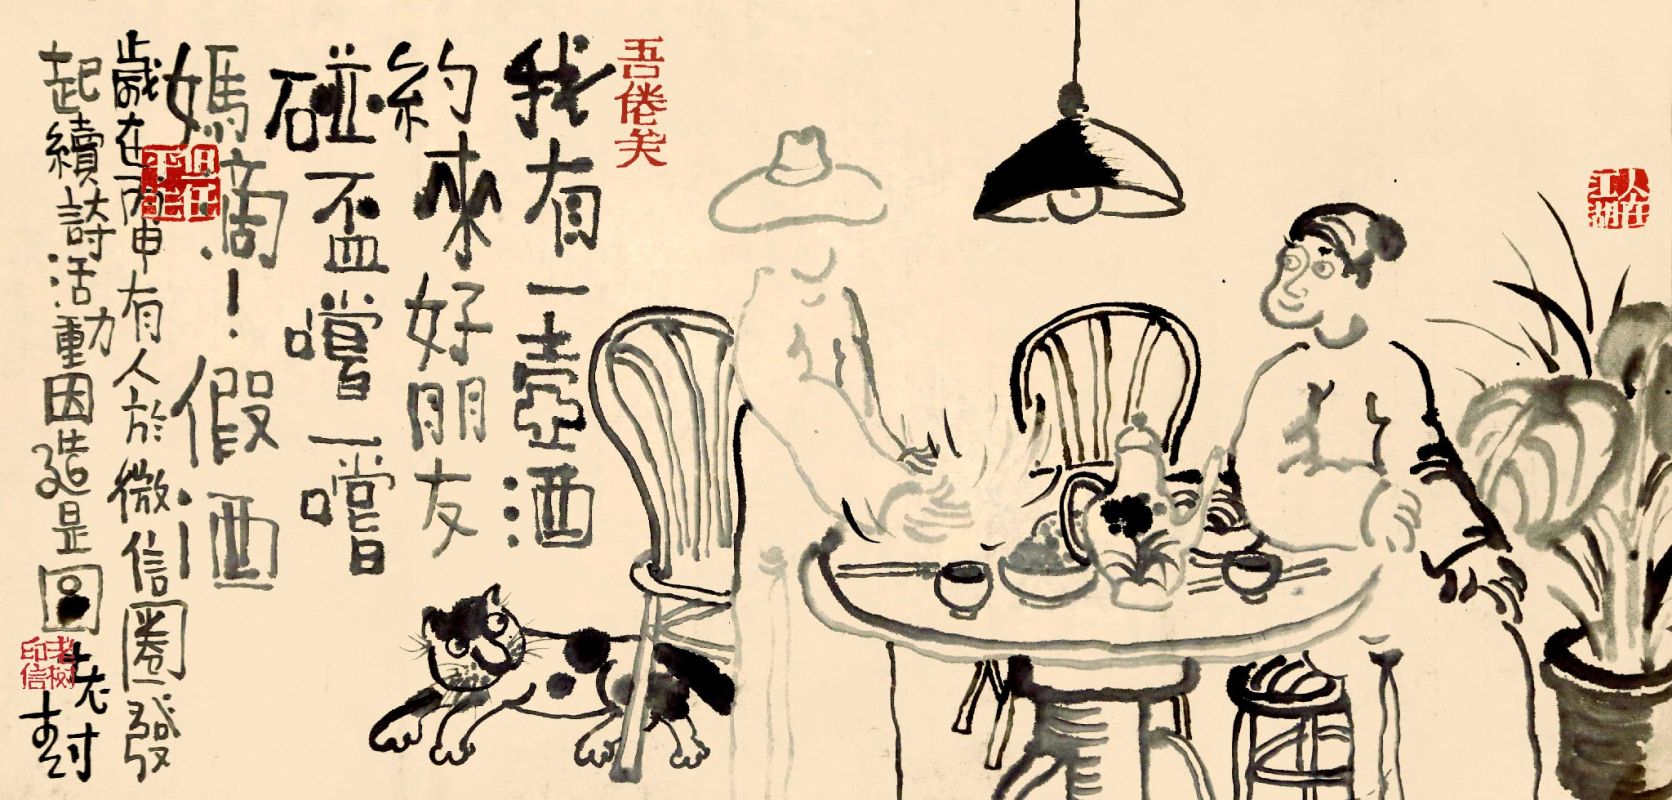 人在江湖
吾倦矣
我有一壺酒
約來好朋友
碰盃嚐一嚐
媽滴！假酒
歲在丙申有人於微信圈發
起續詩活動因造是圖 老树
老树印信